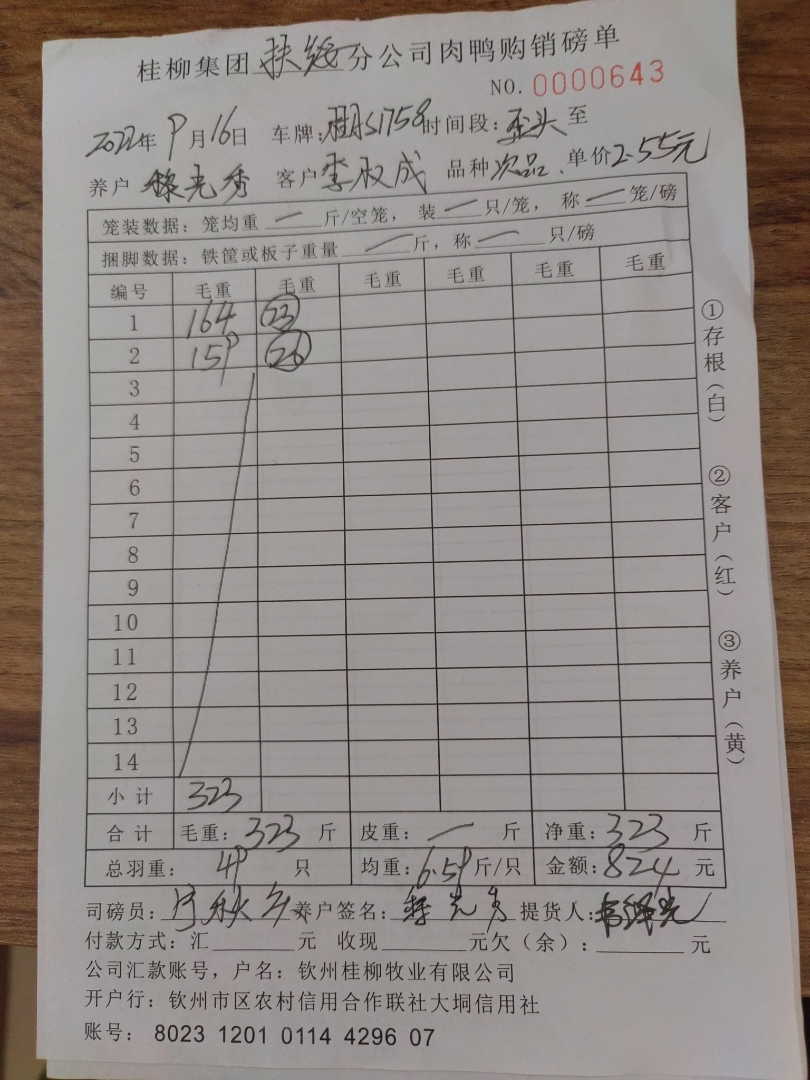 桂柳集团扶绥分公司肉鸭购销磅单
NO. 0000643
2022年9月16日 车牌: S1758 时间段: 至
养户 光秀 客户 李 成 品种 次品 单价 2.55元
笼装数据: 笼均重 — 斤/空笼, 装 — 只/笼, 称 — 笼/磅
捆脚数据: 铁筐或板子重量 — 斤, 称 — 只/磅
编号 毛重 毛重 毛重 毛重 毛重 毛重
1 164 23
2 159 26
3
4
5
6
7
8
9
10
11
12
13
14
小计 323
合计 毛重: 323 斤 皮重: — 斤 净重: 323 斤
总羽重: 49 只 均重: 6.59 斤/只 金额: 824 元
司磅员: 养户签名: 光秀 提货人:
付款方式: 汇______元 收现______元欠(余): ______元
公司汇款账号, 户名: 钦州桂柳牧业有限公司
开户行: 钦州市区农村信用合作联社大垌信用社
账号: 8023 1201 0114 4296 07
①存根(白)
②客户(红)
③养户(黄)